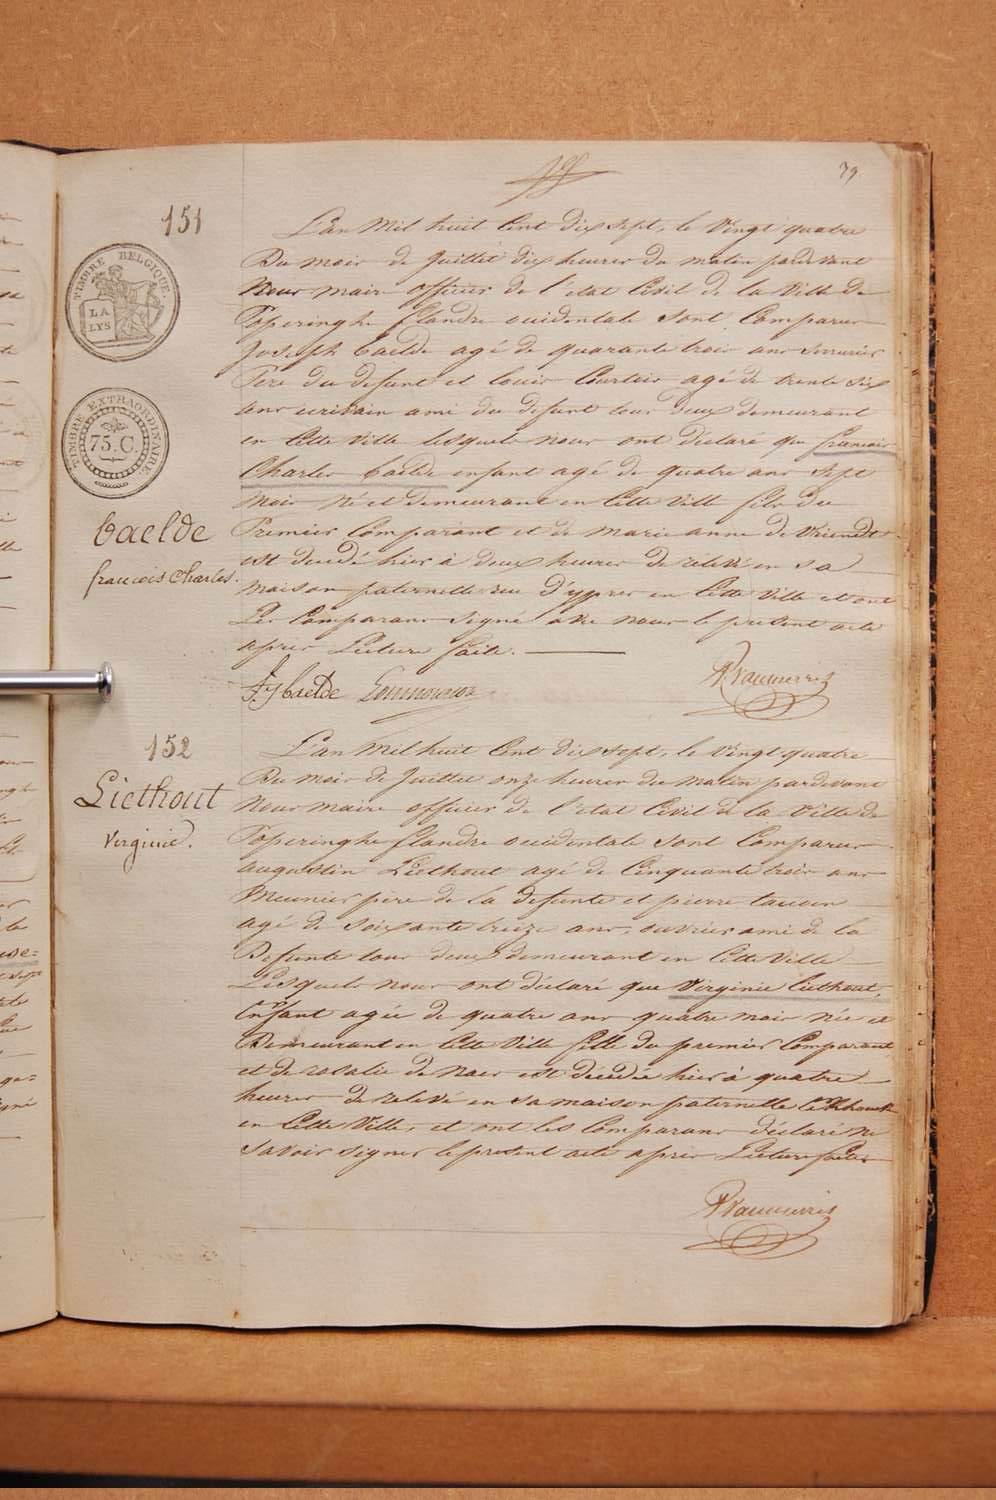 39
151
TIMBRE BELGIQUE
LA
LYS
TIMBRE EXTRAORDINAIRE
75.C.
Caelde
francois Charles.
L'an Mil huit Cent dix sept, le Vingt quatre
Du mois de Juillet dix heures du matin pardevant
Nous maire officier de l'etat Civil de la Ville de
Poperinghe flandre occidentale sont Comparus
Joseph Caelde agé de quarante trois ans serrurier
Pere du defunt et louis Courtois agé de trente six
ans ecrivain ami du defunt tous deux demeurant
en Cette Ville lesquels nous ont déclaré que francois
Charles Caelde enfant agé de quatre ans sept
mois né et demeurant en Cette Ville fils du
Premier Comparant et de marie anne de Vriendt
est decedé hier à deux heures de relevé en sa
maison paternelle rue d'ypres en Cette Ville et ont
Les Comparans signé avec nous le present acte
apres Lecture faite.
152
Liethout
virginie.
L'an Mil huit Cent dix sept, le Vingt quatre
Du mois de Juillet onze heures du matin pardevant
Nous maire officier de l'etat Civil de la Ville de
Poperinghe flandre occidentale sont Comparus
augustin Liethout agé de Cinquante trois ans
Meunier père de la defunte et pierre
agé de soixante treize ans, ouvrier ami de la
Defunte tous deux demeurant en Cette Ville
Lesquels nous ont déclaré que Virginie Liethout,
Enfant agée de quatre ans quatre mois née et
Demeurant en Cette Ville fille du premier Comparant
et de rosalie de naer est decedée hier à quatre
heures de relevé en sa maison paternelle
en Cette Ville, et ont les Comparans déclaré ne
savoir signer le present acte apres Lecture faite